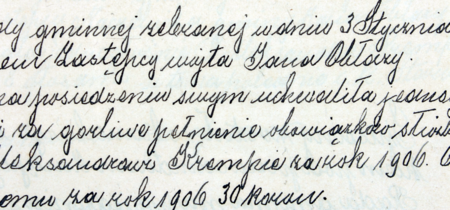 dy gminnej zebranej w dniu 3 Stycznia
em Zastępcy wójta Jana Obłązy.
na posiedzeniu swym uchwaliła jedno
i za gorliwe pełnienie obowiązków stró
leksandrowi Krempie za rok 1906.
emu za rok 1906 30 koron.